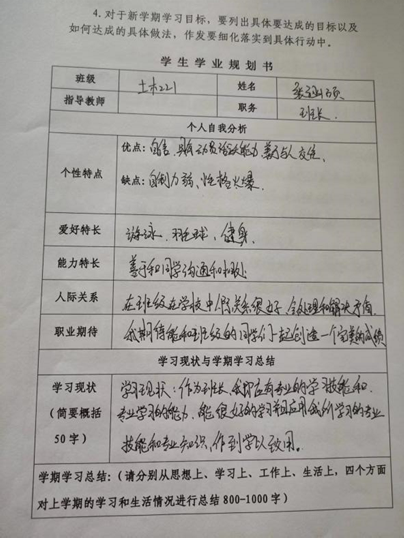 4. 对于新学期学习目标，要列出具体要达成的目标以及
如何达成的具体做法，作发要细化落实到具体行动中。
学生学业规划书
班级 土木221 姓名
指导教师 职务 班长
个人自我分析
个性特点
优点：自信、具有动员活动能力 善于与人交往、
缺点：自制力弱、性格火爆、
爱好特长 游泳、羽毛球、健身
能力特长 善于和同学沟通和
人际关系 在班级在学校中人际关系很好、会处理和解决矛盾
职业期待 我期待能和班级的同学们一起创造一个完美的成绩
学习现状与学期学习总结
学习现状 学习现状：作为班长、我应有专业的学习技能和
（简要概括 专业学习的能力、能很好的学习和应用我们学习的专业
50 字） 技能和专业知识、作到学以致用。
学期学习总结：（请分别从思想上、学习上、工作上、生活上，四个方面
对上学期的学习和生活情况进行总结 800-1000 字）